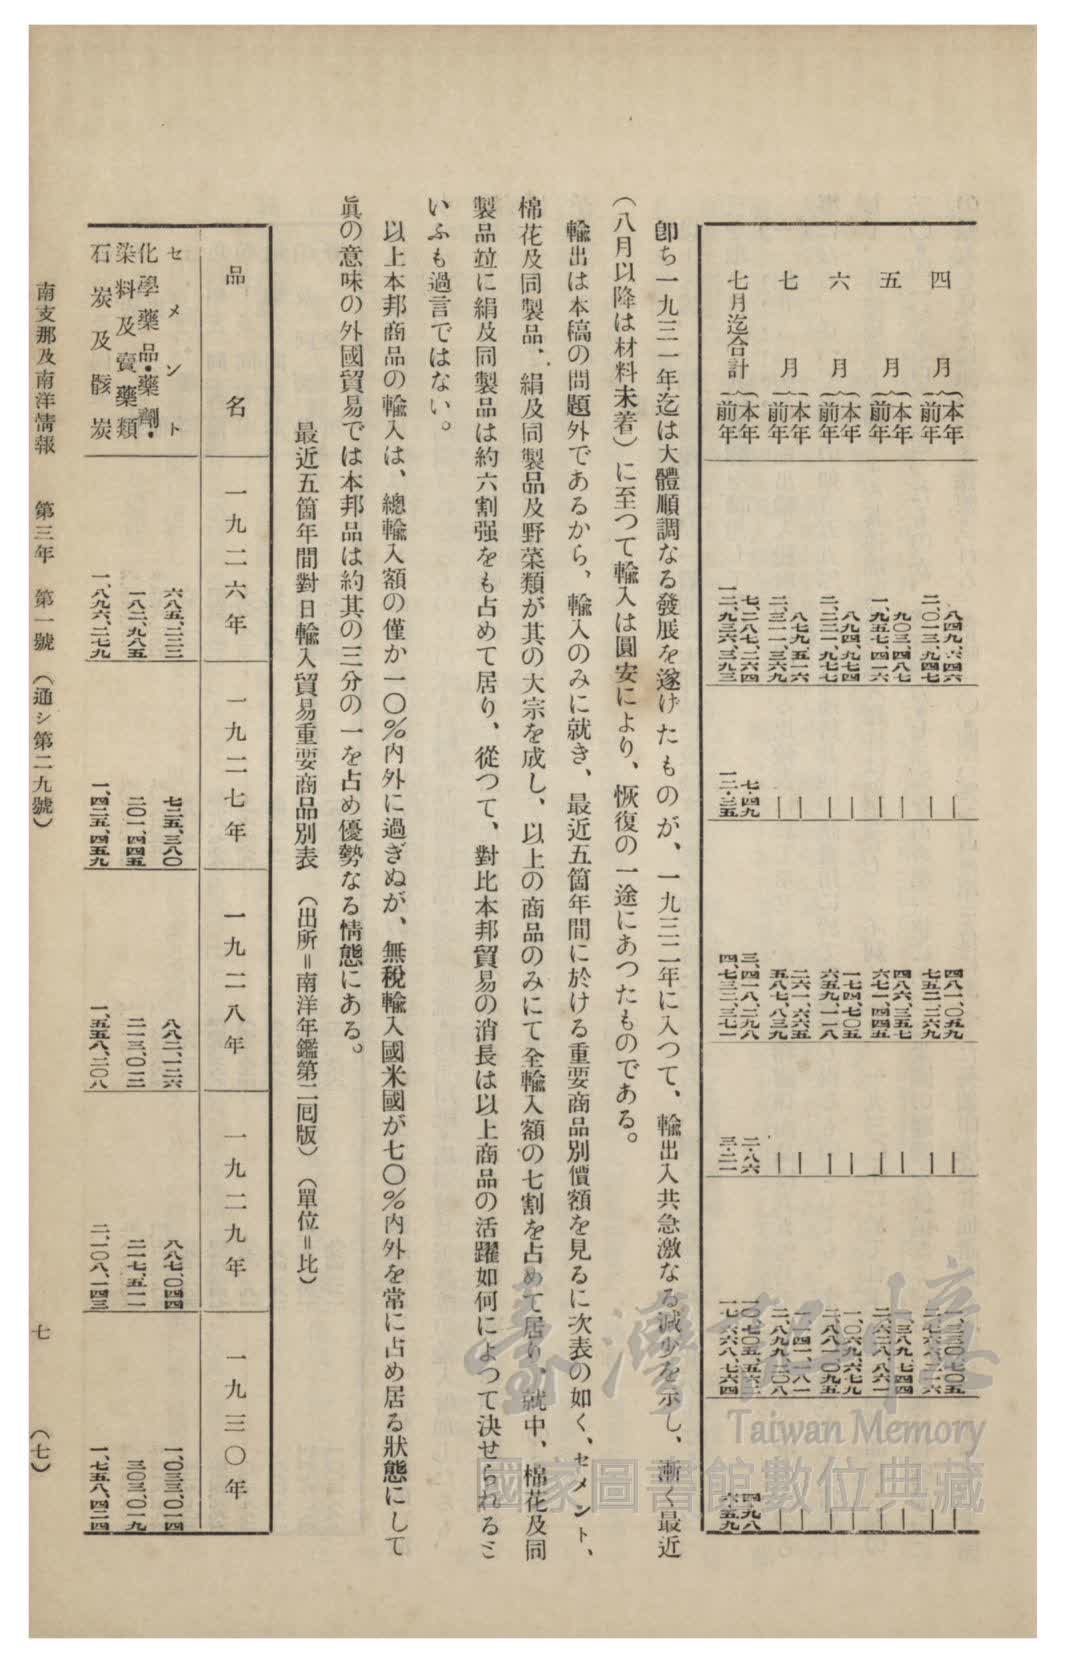 四月{本年 八四九、六四六 — 四八一、〇五九 — 一、三三〇、七〇五 —
前年 二、〇一三、九四七 — 七五二、二六九 — 二、七六六、二一六 —
五月{本年 九〇三、四八七 — 四八六、三五七 — 一、三八九、七四四 —
前年 一、九五七、四一六 — 六七一、四四五 — 二、六二八、八六一 —
六月{本年 八九四、九七四 — 一七四、七〇五 — 一、〇六九、六七九 —
前年 二、二二一、九七七 — 六五九、一一八 — 二、八八一、〇九五 —
七月{本年 八七九、五一六 — 二六一、六六五 — 一、一四一、一八一 —
前年 二、三一一、三六九 — 五八七、八三九 — 二、八九九、二〇八 —
七月迄合計{本年 七、二八七、二六四 七・四九 三、四一八、二九八 二・八六 一〇、七〇五、五六二 四九八
前年 一二、九三六、三九三 一二・三五 四、七三二、三七一 三・二一 一七、六六八、七六四 六五九
卽ち一九三一年迄は大體順調なる發展を遂げたものが、一九三二年に入つて、輸出入共急激なる減少を示し、漸く最近
(八月以降は材料未着)に至つて輸入は圓安により、恢復の一途にあつたものである。
輸出は本稿の問題外であるから、輸入のみに就き、最近五箇年間に於ける重要商品別價額を見るに次表の如く、セメント、
棉花及同製品、絹及同製品及野菜類が其の大宗を成し、以上の商品のみにて全輸入額の七割を占めて居り、就中、棉花及同
製品竝に絹及同製品は約六割强をも占めて居り、從つて、對比本邦貿易の消長は以上商品の活躍如何によつて決せられると
いふも過言ではない。
以上本邦商品の輸入は、總輸入額の僅か一〇%內外に過ぎぬが、無稅輸入國米國が七〇%內外を常に占め居る狀態にして
眞の意味の外國貿易では本邦品は約其の三分の一を占め優勢なる情態にある。
最近五箇年間對日輸入貿易重要商品別表 (出所=南洋年鑑第二囘版) (單位=比)
品名 一九二六年 一九二七年 一九二八年 一九二九年 一九三〇年
セメント 六八五、二三二 七二五、三八〇 八八二、一二六 八八七、〇四四 一、〇三三、〇一四
化學藥品・藥劑・
染料及賣藥類 一八二、九八五 二〇一、四四五 二一三、〇一二 二一七、五一一 三〇三、〇一九
石炭及骸炭 一、八九六、二七九 一、四二五、四五九 一、五五八、二〇八 二、一〇八、一四三 一、七五八、四二四
南支那及南洋情報 第三年 第一號 (通シ第二九號) 七 (七)
臺灣記憶
Taiwan Memory
國家圖書館數位典藏